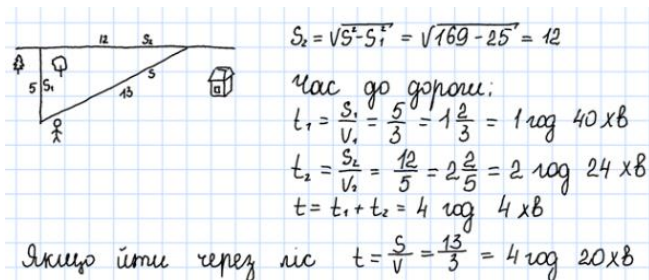 12 S₂
S₂ = √S²-S₁² = √169-25 = 12
5 S₁ S
13
Час до дороги:
t₁ = S₁/V₁ = 5/3 = 1 2/3 = 1 год 40 хв
t₂ = S₂/V₂ = 12/5 = 2 2/5 = 2 год 24 хв
t = t₁ + t₂ = 4 год 4 хв
Якщо йти через ліс t = S/V = 13/3 = 4 год 20 хв